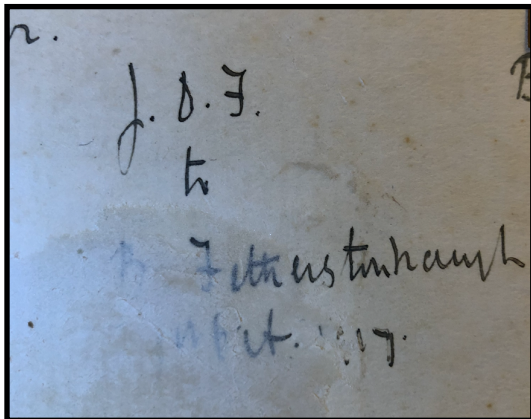 r.
J. D. F.
to
B. Fetherstonhaugh
Oct. 1917.
B